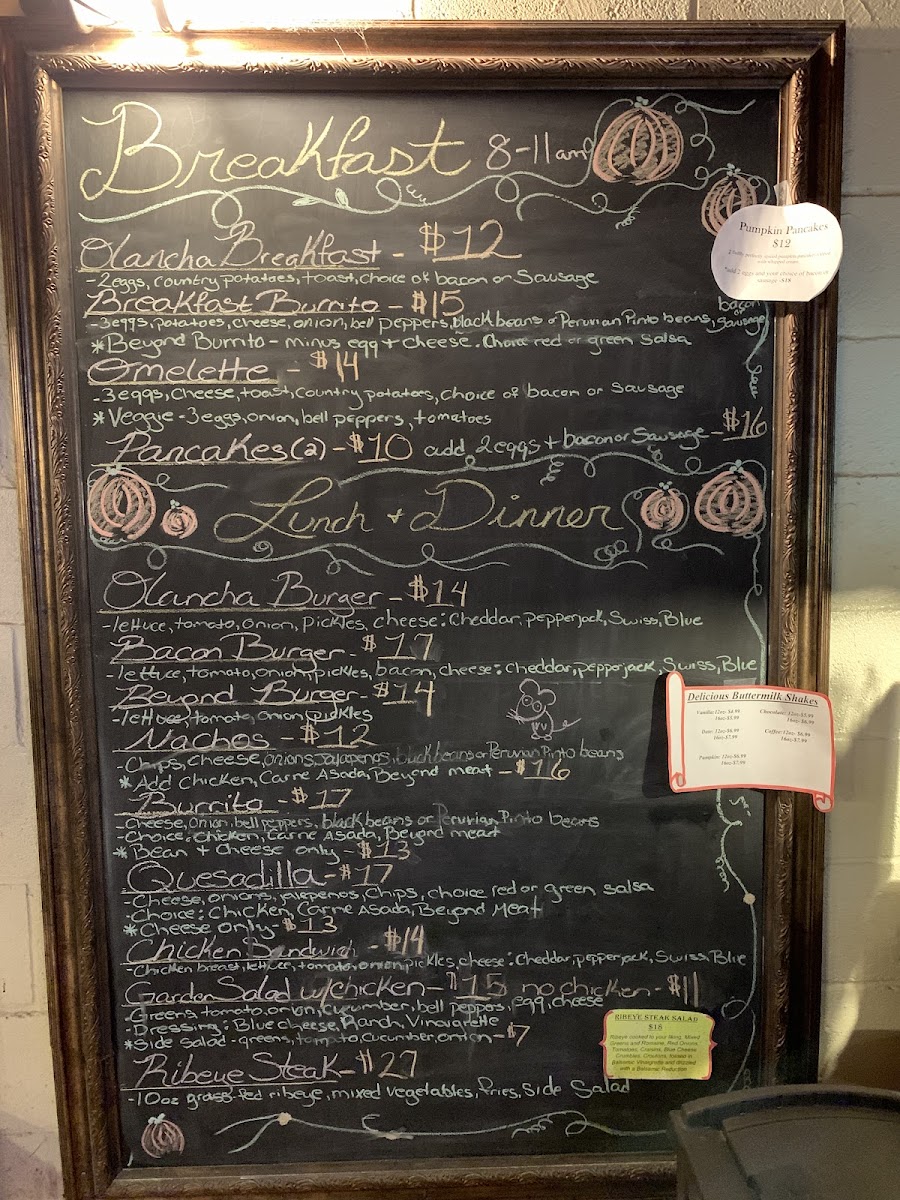 Breakfast 8-11am
Olancha Breakfast - $12
-2eggs, country potatoes, toast, choice of bacon or Sausage
Breakfast Burrito - $15
-3eggs, potatoes, cheese, onion, bell peppers, black beans or Peruvian Pinto beans, bacon or Sausage
*Beyond Burrito - minus egg + cheese. Choice red or green salsa
Omelette - $14
-3eggs, cheese, toast, country potatoes, choice of bacon or Sausage
*Veggie - 3eggs, onion, bell peppers, tomatoes
Pancakes (2) - $10 add 2eggs + bacon or Sausage - $16
Pumpkin Pancakes
$12
*add 2 eggs and your choice of bacon or
sausage -$18
Lunch + Dinner
Olancha Burger - $14
-lettuce, tomato, onion, pickles, cheese: Cheddar, pepperjack, Swiss, Blue
Bacon Burger - $17
-lettuce, tomato, onion, pickles, bacon, cheese: Cheddar, pepperjack, Swiss, Blue
Beyond Burger - $14
-lettuce, tomato, onion, pickles
Nachos - $12
-Chips, cheese, onions, jalapenos, black beans or Peruvian Pinto beans
*Add Chicken, Carne Asada, Beyond meat - $16
Burrito - $17
-Cheese, onion, bell peppers, black beans or Peruvian Pinto beans
-Choice: Chicken, Carne Asada, Beyond meat
*Bean + Cheese only - $13
Quesadilla - $17
-Cheese, onions, jalepenos, Chips, choice red or green salsa
-Choice: Chicken, Carne Asada, Beyond Meat
*Cheese only - $13
Chicken Sandwich - $14
-Chicken breast, lettuce, tomato, onion, pickles, cheese: Cheddar, pepperjack, Swiss, Blue
Garden Salad w/chicken - $15 no chicken - $11
-Greens, tomato, onion, cucumber, bell peppers, egg, cheese
-Dressing: Blue cheese, Ranch, Vinaigrette
*Side salad - greens, tomato, cucumber, onion - $7
Ribeye Steak - $27
-10oz grass-fed ribeye, mixed vegetables, fries, Side Salad
Delicious Buttermilk Shakes
Vanilla: 12oz- $4.99 Chocolate: 12oz-$5.99
16oz-$5.99 16oz- $6.99
Date: 12oz-$6.99 Coffee: 12oz- $6.99
16oz-$7.99 16oz-$7.99
Pumpkin: 12oz-$6.99
16oz-$7.99
RIBEYE STEAK SALAD
Ribeye cooked to your liking, Mixed
Greens and Romaine, Red Onions,
Tomatoes, Craisins, Blue Cheese
Crumbles, Croutons, tossed in
Balsamic Vinaigrette and drizzled
with a Balsamic Reduction